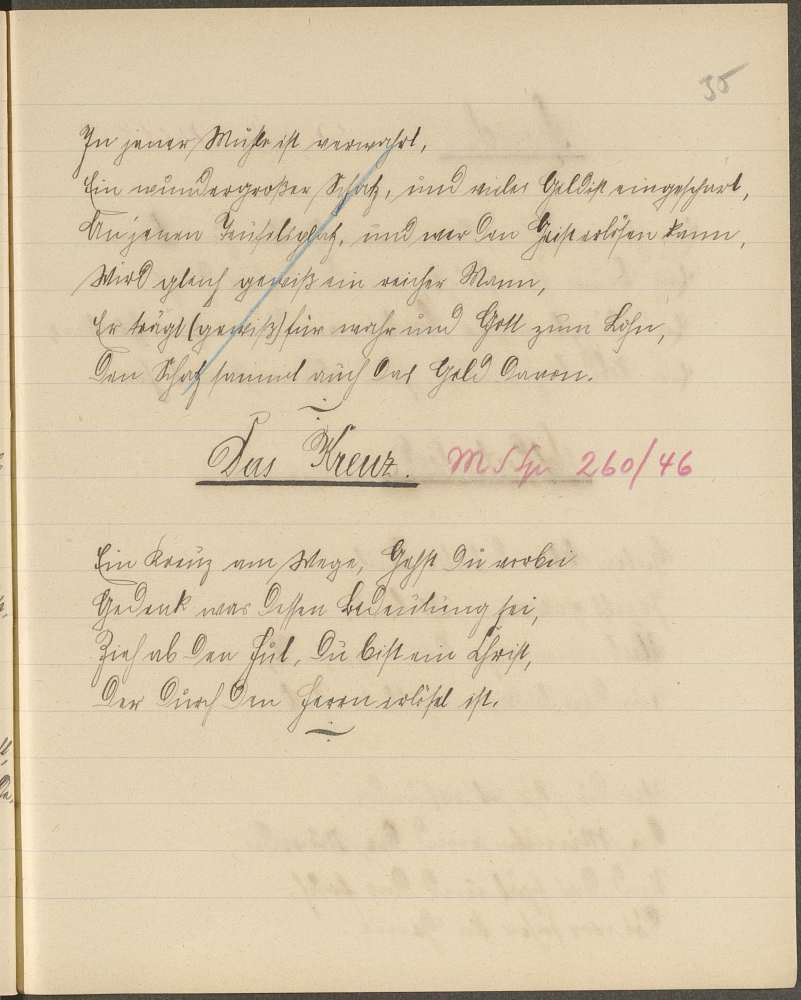 35
In jener Mühle ist verwahrt,
Ein wundergroßer Schatz, und vieles Geld ist eingeschart,
An jenen Teufelsplatz, und wer den Geist erlösen kann,
Wird gleich gewiß ein reicher Mann,
Er trägt (gewiß) für wahr und Gott zum Lohn,
Den Schatz sammt auch das Geld davon.
Das Kreuz. 260/46
Ein Kreuz am Wege, Gehst Du vorbei
Gedenk was dessen Bedeutung sei,
Zieh ab den Hut, Du bist ein Christ,
Der durch den Herrn erlöset ist.